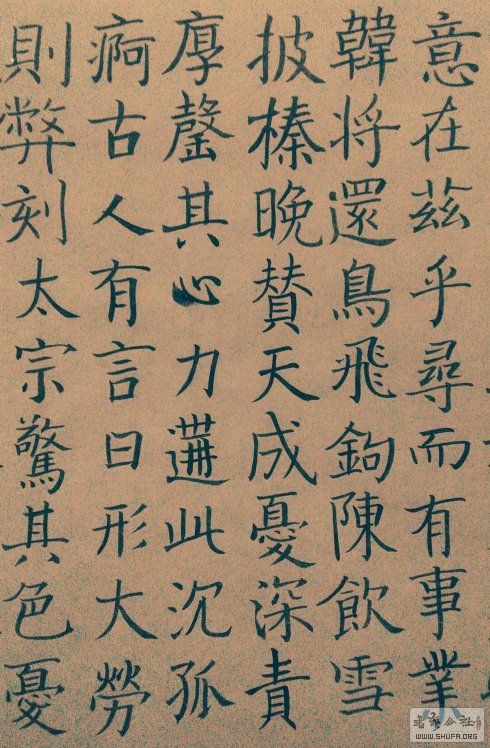 意在茲乎尋而有事業
韓将還鳥飛鉤陳飲雪
披榛晚賛天成憂深責
厚罄其心力遘此沉孤
痾古人有言曰形大勞
則弊刻太宗驚其色憂
WWW.SHUFA.ORG